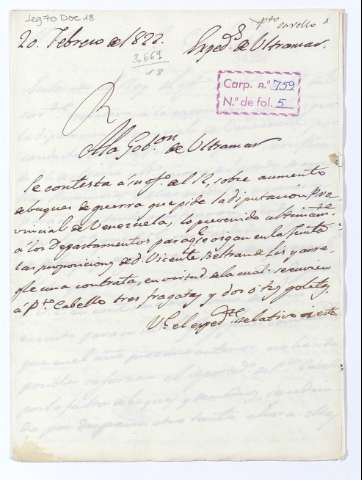 Leg 70 Doc 18
20. Febrero de 1822.
Exped.s de Ultramar.
3.669
18
Carp. n.º 759
N.º de fol. 5
A la Gob.on de Ultramar
Se contesta á su of.o del 12, sobre aumento
de buques de guerra que pide la diputacion Pro
vincial de Venezuela, lo prevenido
a los Departamentos para q.e oigan en la Junta
las proposiciones de d. Vicente Beltran de Lis y arre
gle una contrata, en virtud de la cual
á P.to Cabello tres fragatas y dos ó tres goletas
V.e el exped.te relativo